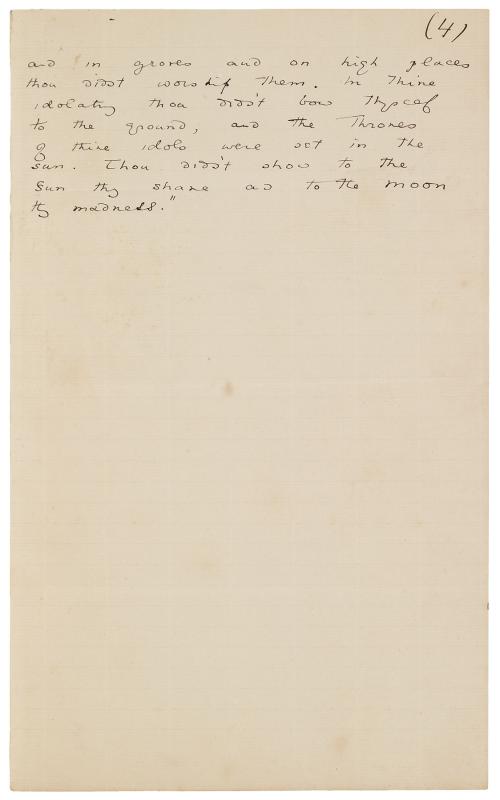 (4)
and in groves and on high places
thou didst worship them. In thine
idolatry thou didst bow thyself
to the ground, and the thrones
of thine idols were set in the
sun. Thou didst show to the
Sun thy shame and to the moon
thy madness."